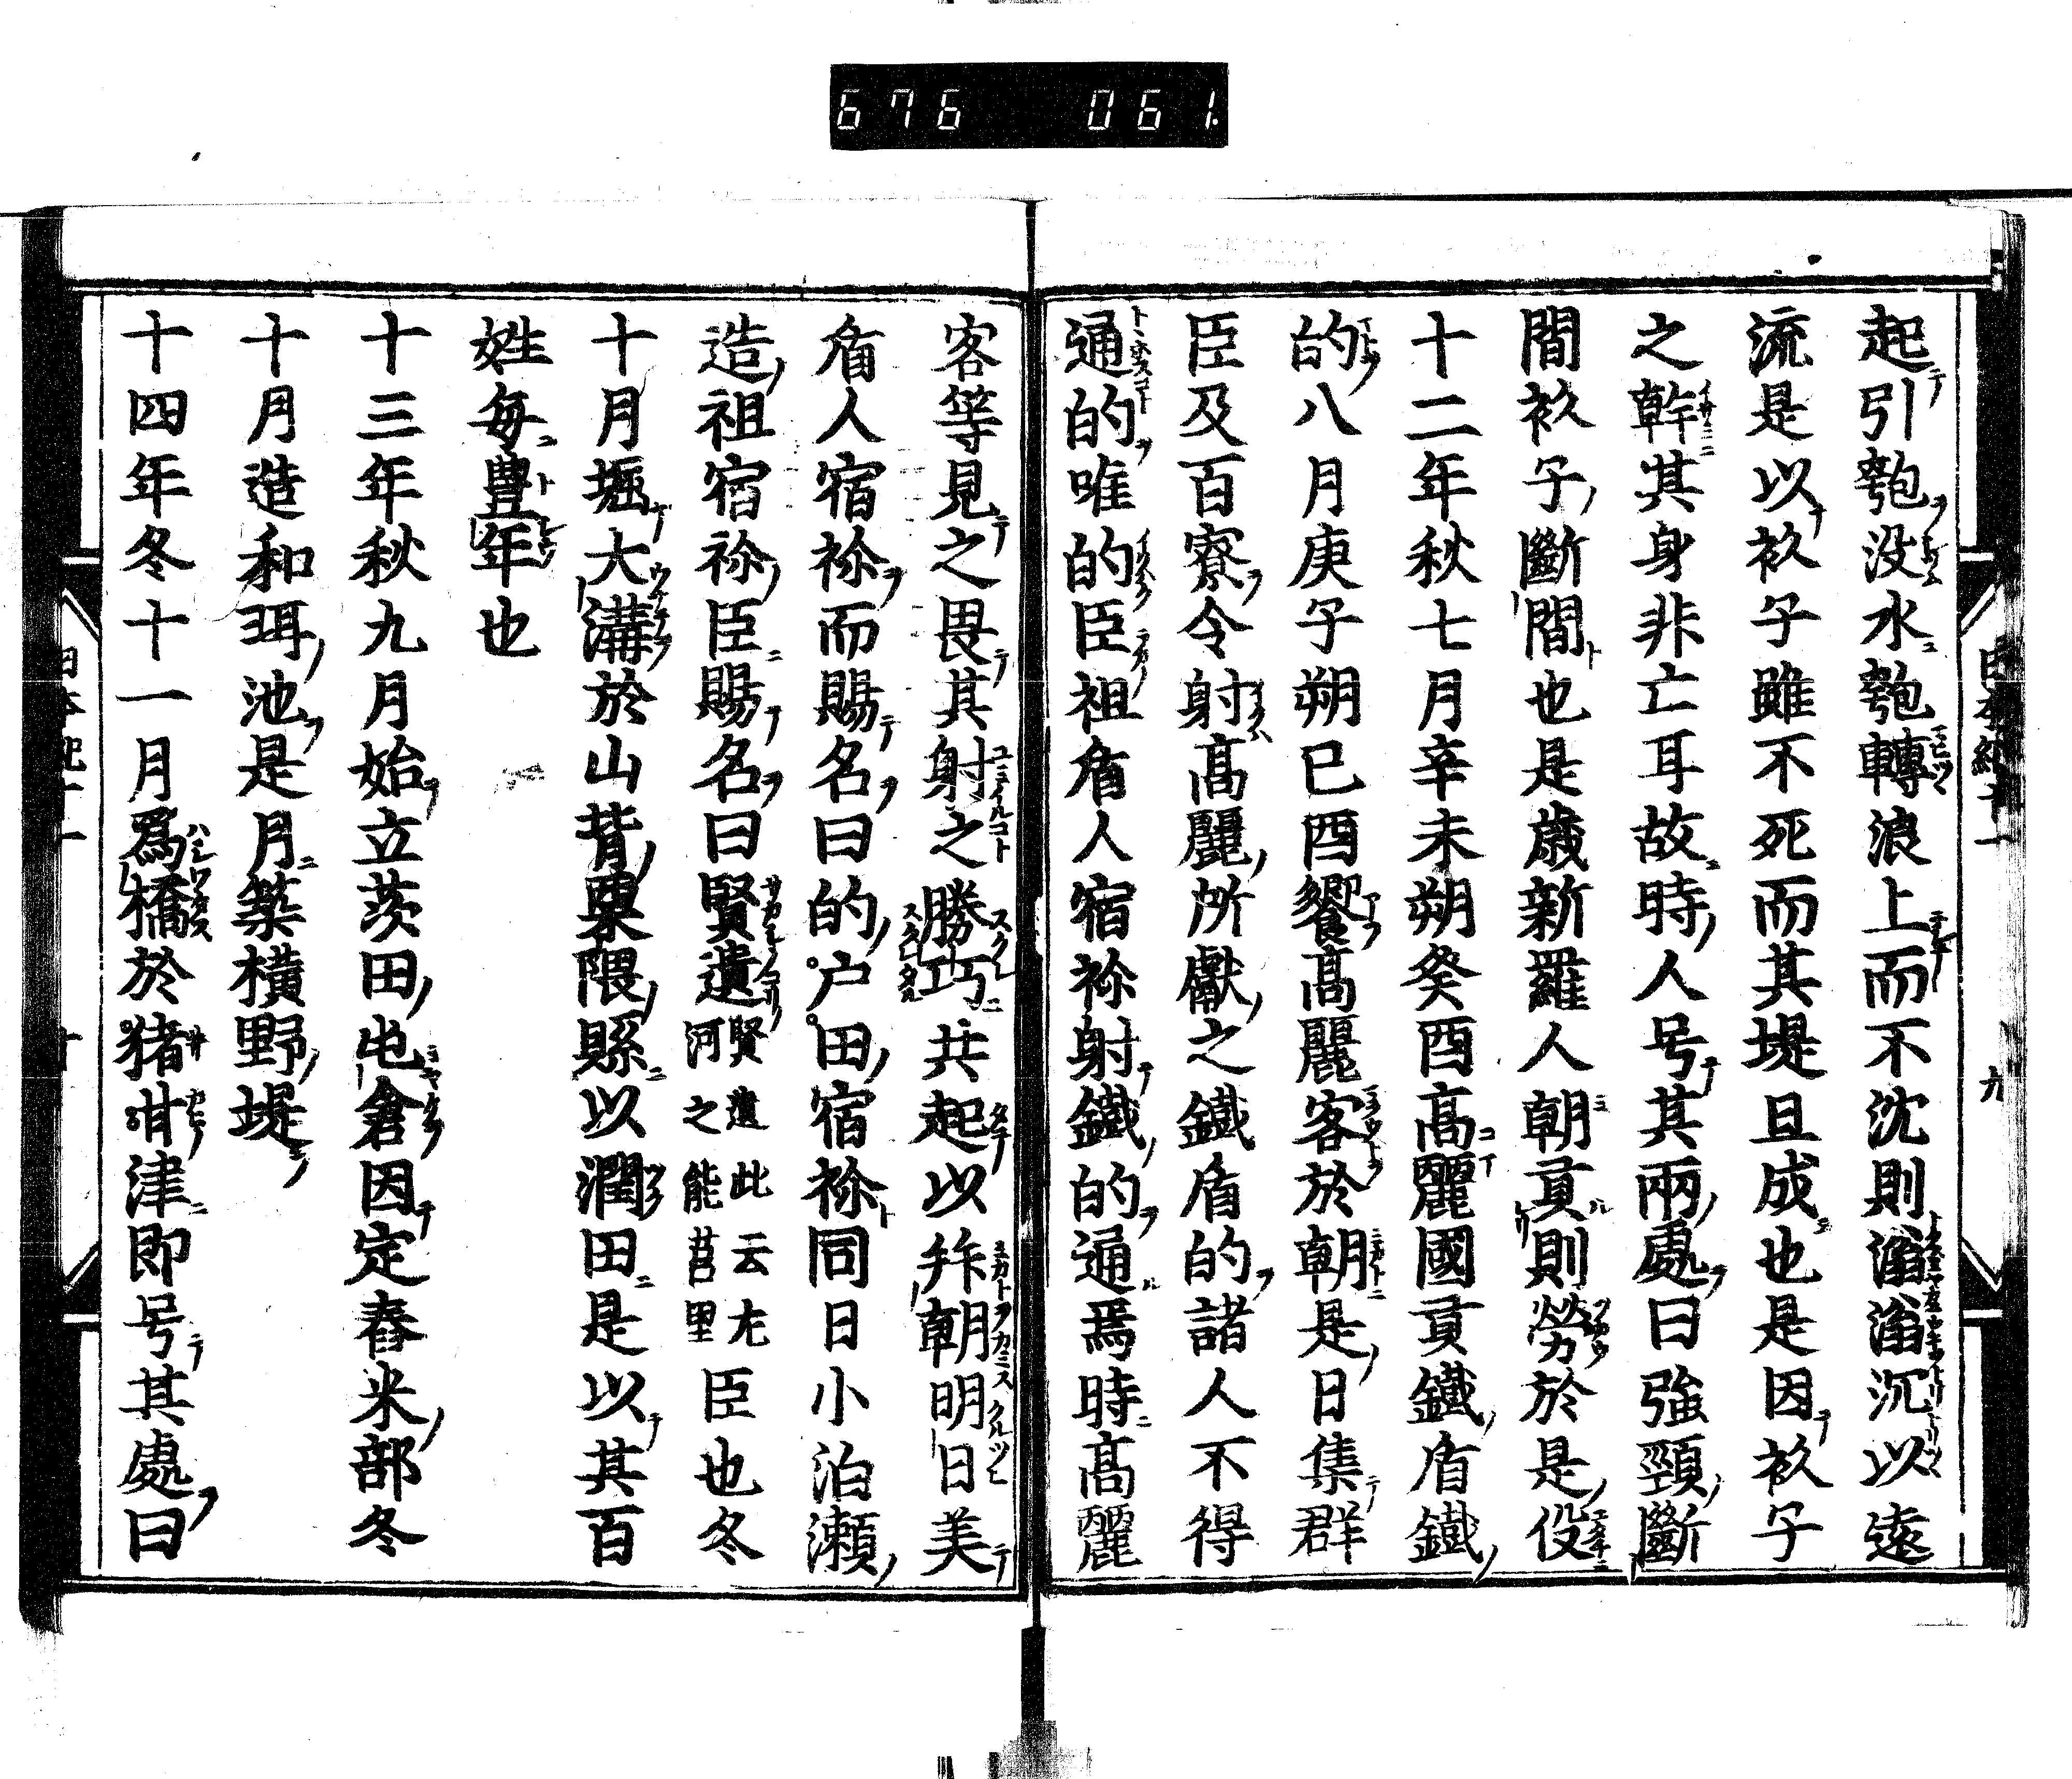 676 061.
起引匏没水匏轉浪上而不沈則滃滃沉以遠
流是以衫子雖不死而其堤且成也是因衫子
之幹其身非亡耳故時人号其兩處曰強頸斷
間衫子斷間也是歳新羅人朝貢則勞於是役
十二年秋七月辛未朔癸酉髙麗國貢鐵盾鐵
的八月庚子朔已酉饗髙麗客於朝是日集群
臣及百寮令射髙麗所獻之鐵盾的諸人不得
通的唯的臣祖盾人宿祢射鐵的通焉時髙麗
客等見之畏其射之勝巧共起以拜朝明日美
盾人宿祢而賜名曰的戸田宿祢同日小泊瀬
造祖宿祢臣賜名曰賢遺賢遺此云左河之能莒里臣也冬
十月堀大溝於山背栗隈縣以潤田是以其百
姓毎豊年也
十三年秋九月始立茨田屯倉因定舂米部冬
十月造和珥池是月築横野堤
十四年冬十一月爲橋於猪甘津即号其處曰